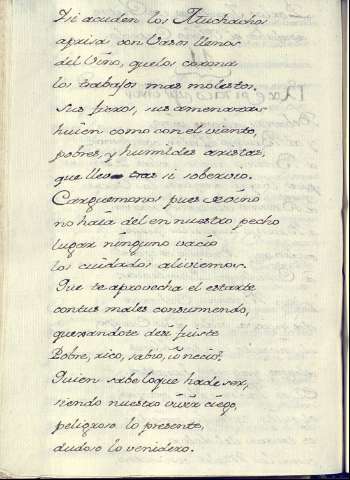 Y si acuden los Muchachos
aprisa con Vasos llenos
del Vino, quelos corona
los trabajos mas molestos.
Sus fieros, sus amenazas
huien como con el viento,
pobres, y humildes aristas,
que lleva tras si sobervio.
Carguemonos pues de vino
no haia del en nuestro pecho
lugar ninguno vacio
los cuidados aliviemos.
Que te aprovecha el estarte
contus males consumiendo,
quexandote
Pobre, rico, sabio, ù necio?
Quien sabe loque hade ser,
siendo nuestro vivir ciego,
peligroso lo presente,
dudoso lo venidero.